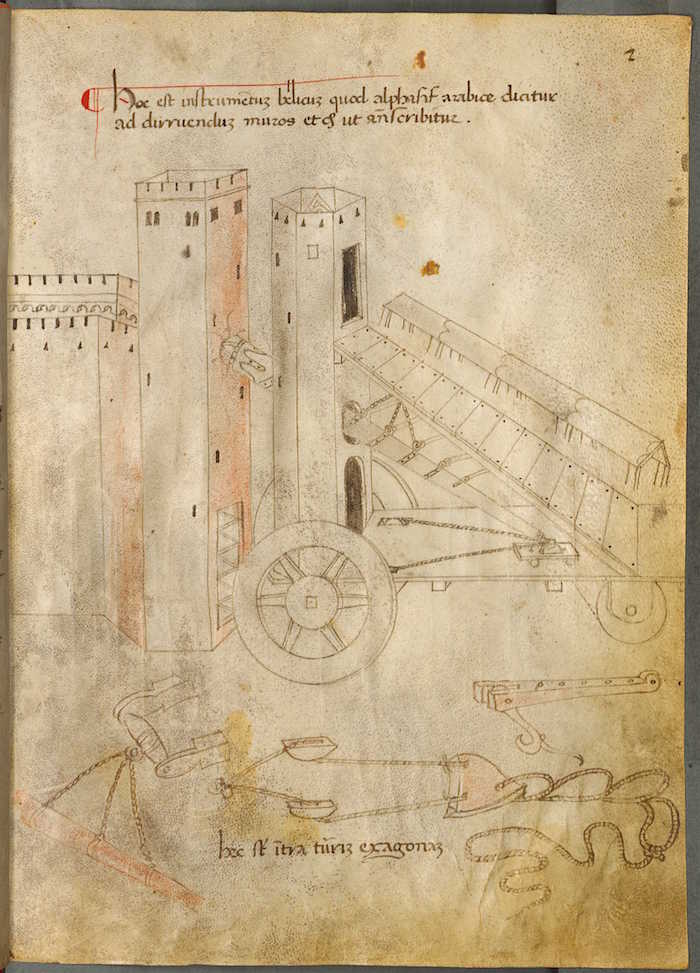 2
Hoc est instrumētuz belicuz quod alphasif arabice dicitur
ad dirruenduz muros et ut an̄scribitur .
hec st̄ īt̄ra tur̄iz exagonaz